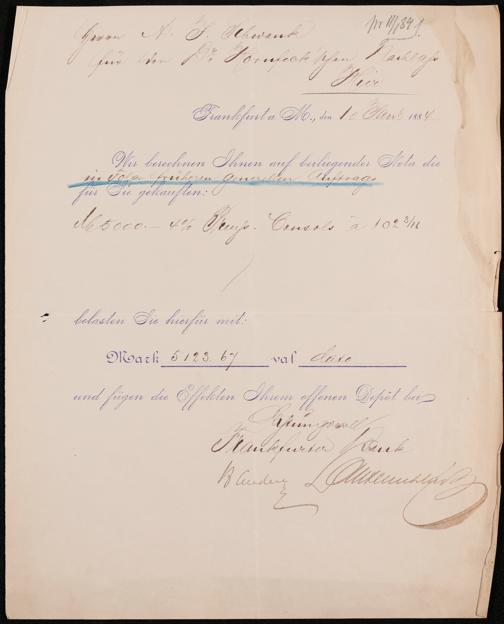 Herrn A. F. Schwenk
für den Dr. Nachlaß
Hier
Frankfurt a M., den 10 1884
Wir berechnen Ihnen auf beiliegender Nota die
in Folge früheren generellen Auftrags
für Sie gekauften:
M 5000.— 4% Preuß. Consols à 102
belasten Sie hierfür mit:
Mark 5123.67 val dato
und fügen die Effekten Ihrem offenen Depôt bei
Frankfurter Bank